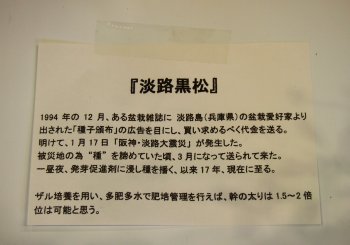 『淡路黒松』
1994 年の 12 月、ある盆栽雑誌に 淡路島(兵庫県)の盆栽愛好家より
出された「種子頒布」の広告を目にし、買い求めるべく代金を送る。
明けて、1 月 17 日「阪神・淡路大震災」が発生した。
被災地の為 “種” を諦めていた頃、3 月になって送られて来た。
一昼夜、発芽促進剤に浸し種を播く、以来 17 年、現在に至る。
ザル培養を用い、多肥多水で肥培管理を行えば、幹の太りは 1.5~2 倍
位は可能と思う。